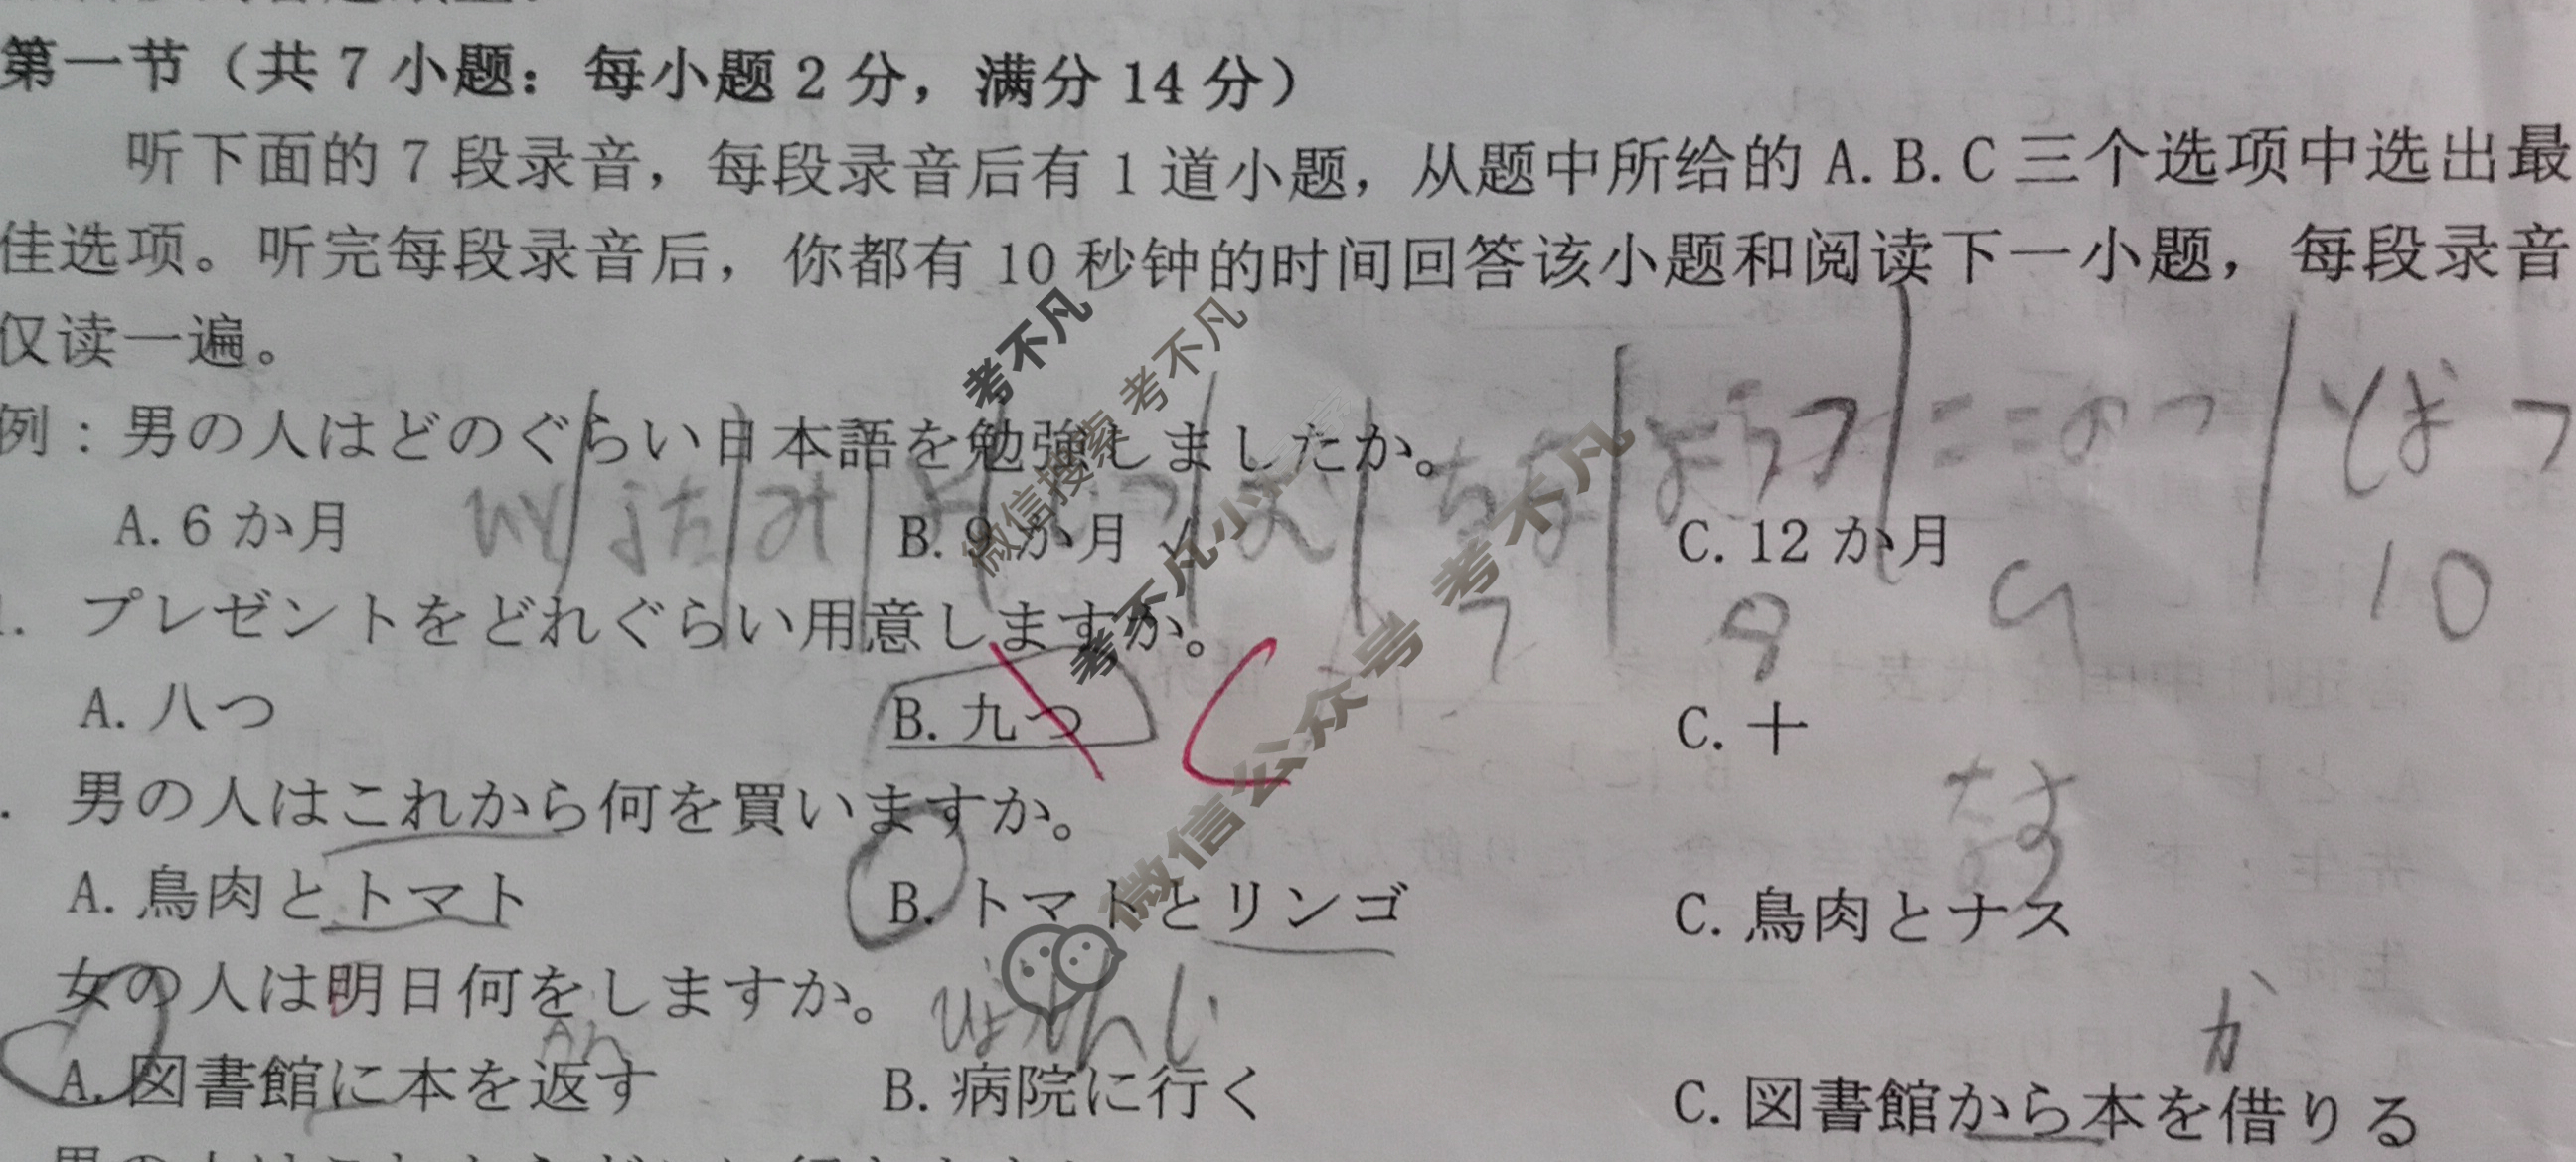 第一节（共 7 小题：每小题 2 分，满分 14 分）
听下面的 7 段录音，每段录音后有 1 道小题，从题中所给的 A.B.C 三个选项中选出最
佳选项。听完每段录音后，你都有 10 秒钟的时间回答该小题和阅读下一小题，每段录音
仅读一遍。
例：男の人はどのぐらい日本語を勉強しましたか。
A. 6 か月 B. 9 か月 C. 12 か月
7 8 9 10
プレゼントをどれぐらい用意しますか。
A. 八つ B. 九つ C. 十
C
男の人はこれから何を買いますか。
なす
A. 鳥肉とトマト B. トマトとリンゴ C. 鳥肉とナス
女の人は明日何をしますか。
か
A. 図書館に本を返す B. 病院に行く C. 図書館から本を借りる
考不凡
微信搜索 考不凡
微信公众号 考不凡